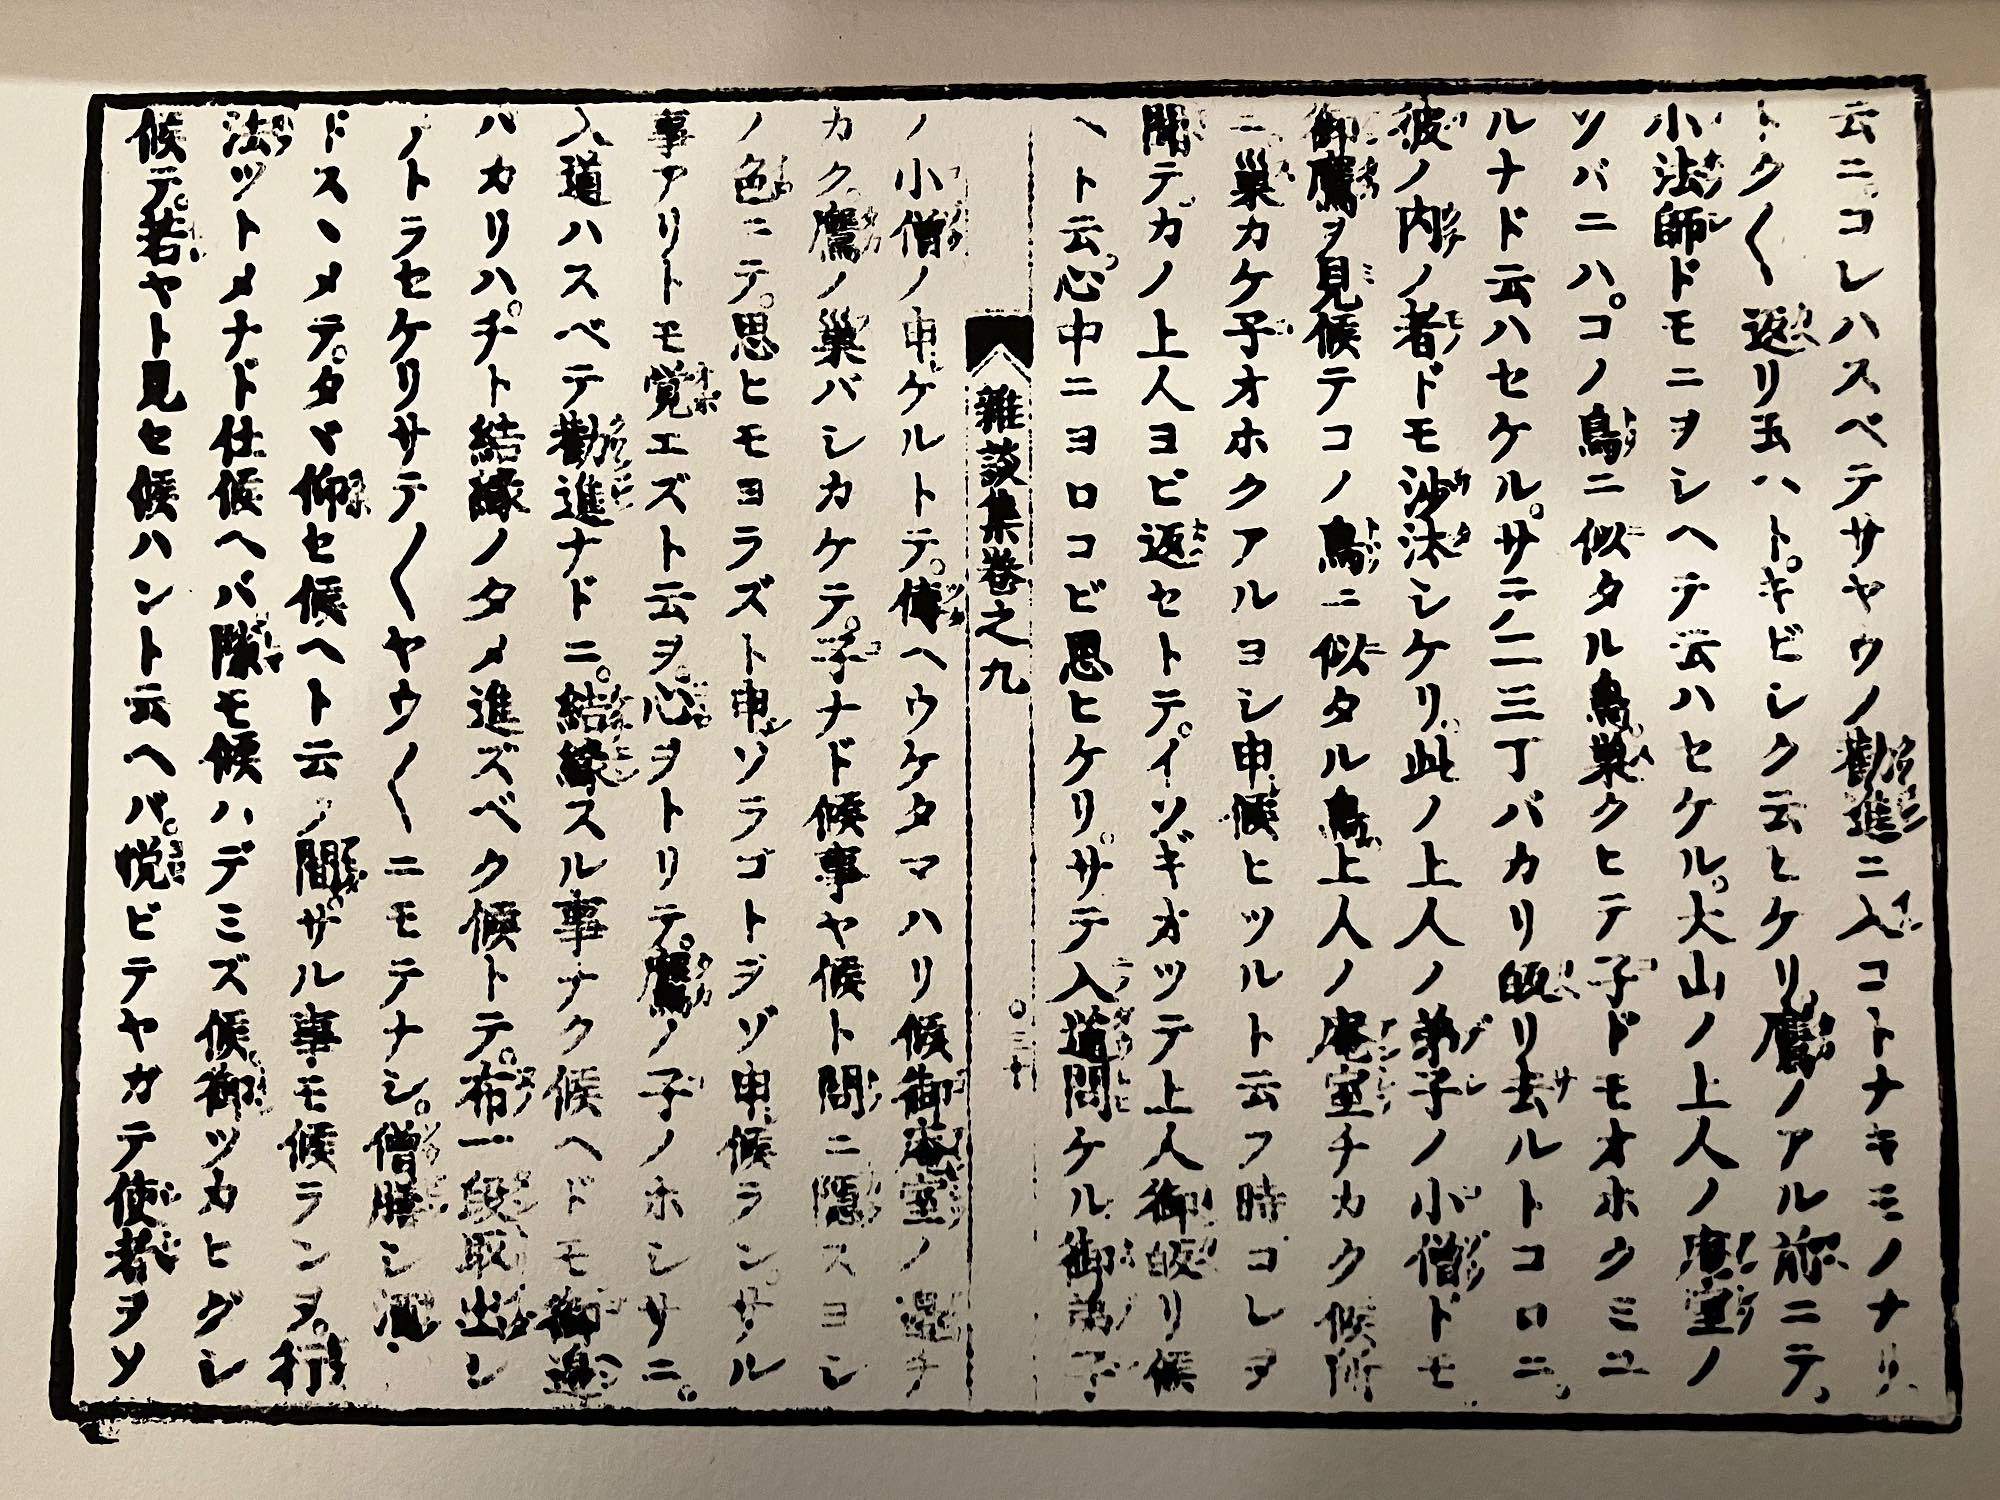 云ニ。コレハスベテサヤウノ勸進ニ入コトナキモノナリ
トク〱返リ玉ハト。キビシク云ヒケリ。鷹ノアル前ニテ。
小法師ドモニヲシヘテ云ハセケル。大山ノ上人ノ庵室ノ
ソバニハ。コノ鳥ニ似タル鳥。巣クヒテ子ドモオホクミユ
ルナド云ハセケル。サテ二三丁バカリ皈リ去ルトコロニ。
彼ノ内ノ者ドモ沙汰シケリ。此ノ上人ノ弟子ノ小僧ドモ
御鷹ヲ見候テコノ鳥ニ似タル鳥。上人ノ庵室チカク候所
ニ巣カケ子オホクアルヨシ申候ヒツルト云フ時コレヲ
聞テ。カノ上人ヨビ返セトテ。イソギオツテ上人御皈リ候
ヘト云。心中ニヨロコビ思ヒケリ。サテ入道問ケル御弟子
雜談集卷之九
〇三十
ノ小僧ノ申ケルトテ。傳ヘウケタマハリ候御庵室ノ邊チ
カク。鷹ノ巣バシカケテ。子ナド候事ヤ候ト問ニ隱スヨシ
ノ色ニテ。思ヒモヨラズト申ソラゴトヲゾ申候ラン。サル
事アリトモ覚エズト云ヲ。心ヲトリテ。鷹ノ子ノホシサニ。
入道ハスベテ勸進ナドニ。結緣スル事ナク候ヘドモ御邊
バカリハ。チト結緣ノタメ進ズベク候トテ。布一段取出シ
ノトラセケリサテ〱ヤウ〱ニモテナシ。僧膳シ酒
ドスヽメテ。タマ仰セ候ヘト云ノ間。サル事モ候ランヲ。行
法ツトメナド仕候ヘバ隙モ候ハデミズ候。御ツカヒグシ
候テ。若ヤト見セ候ハント云ヘバ。悦ビテヤガテ使者ヲソ